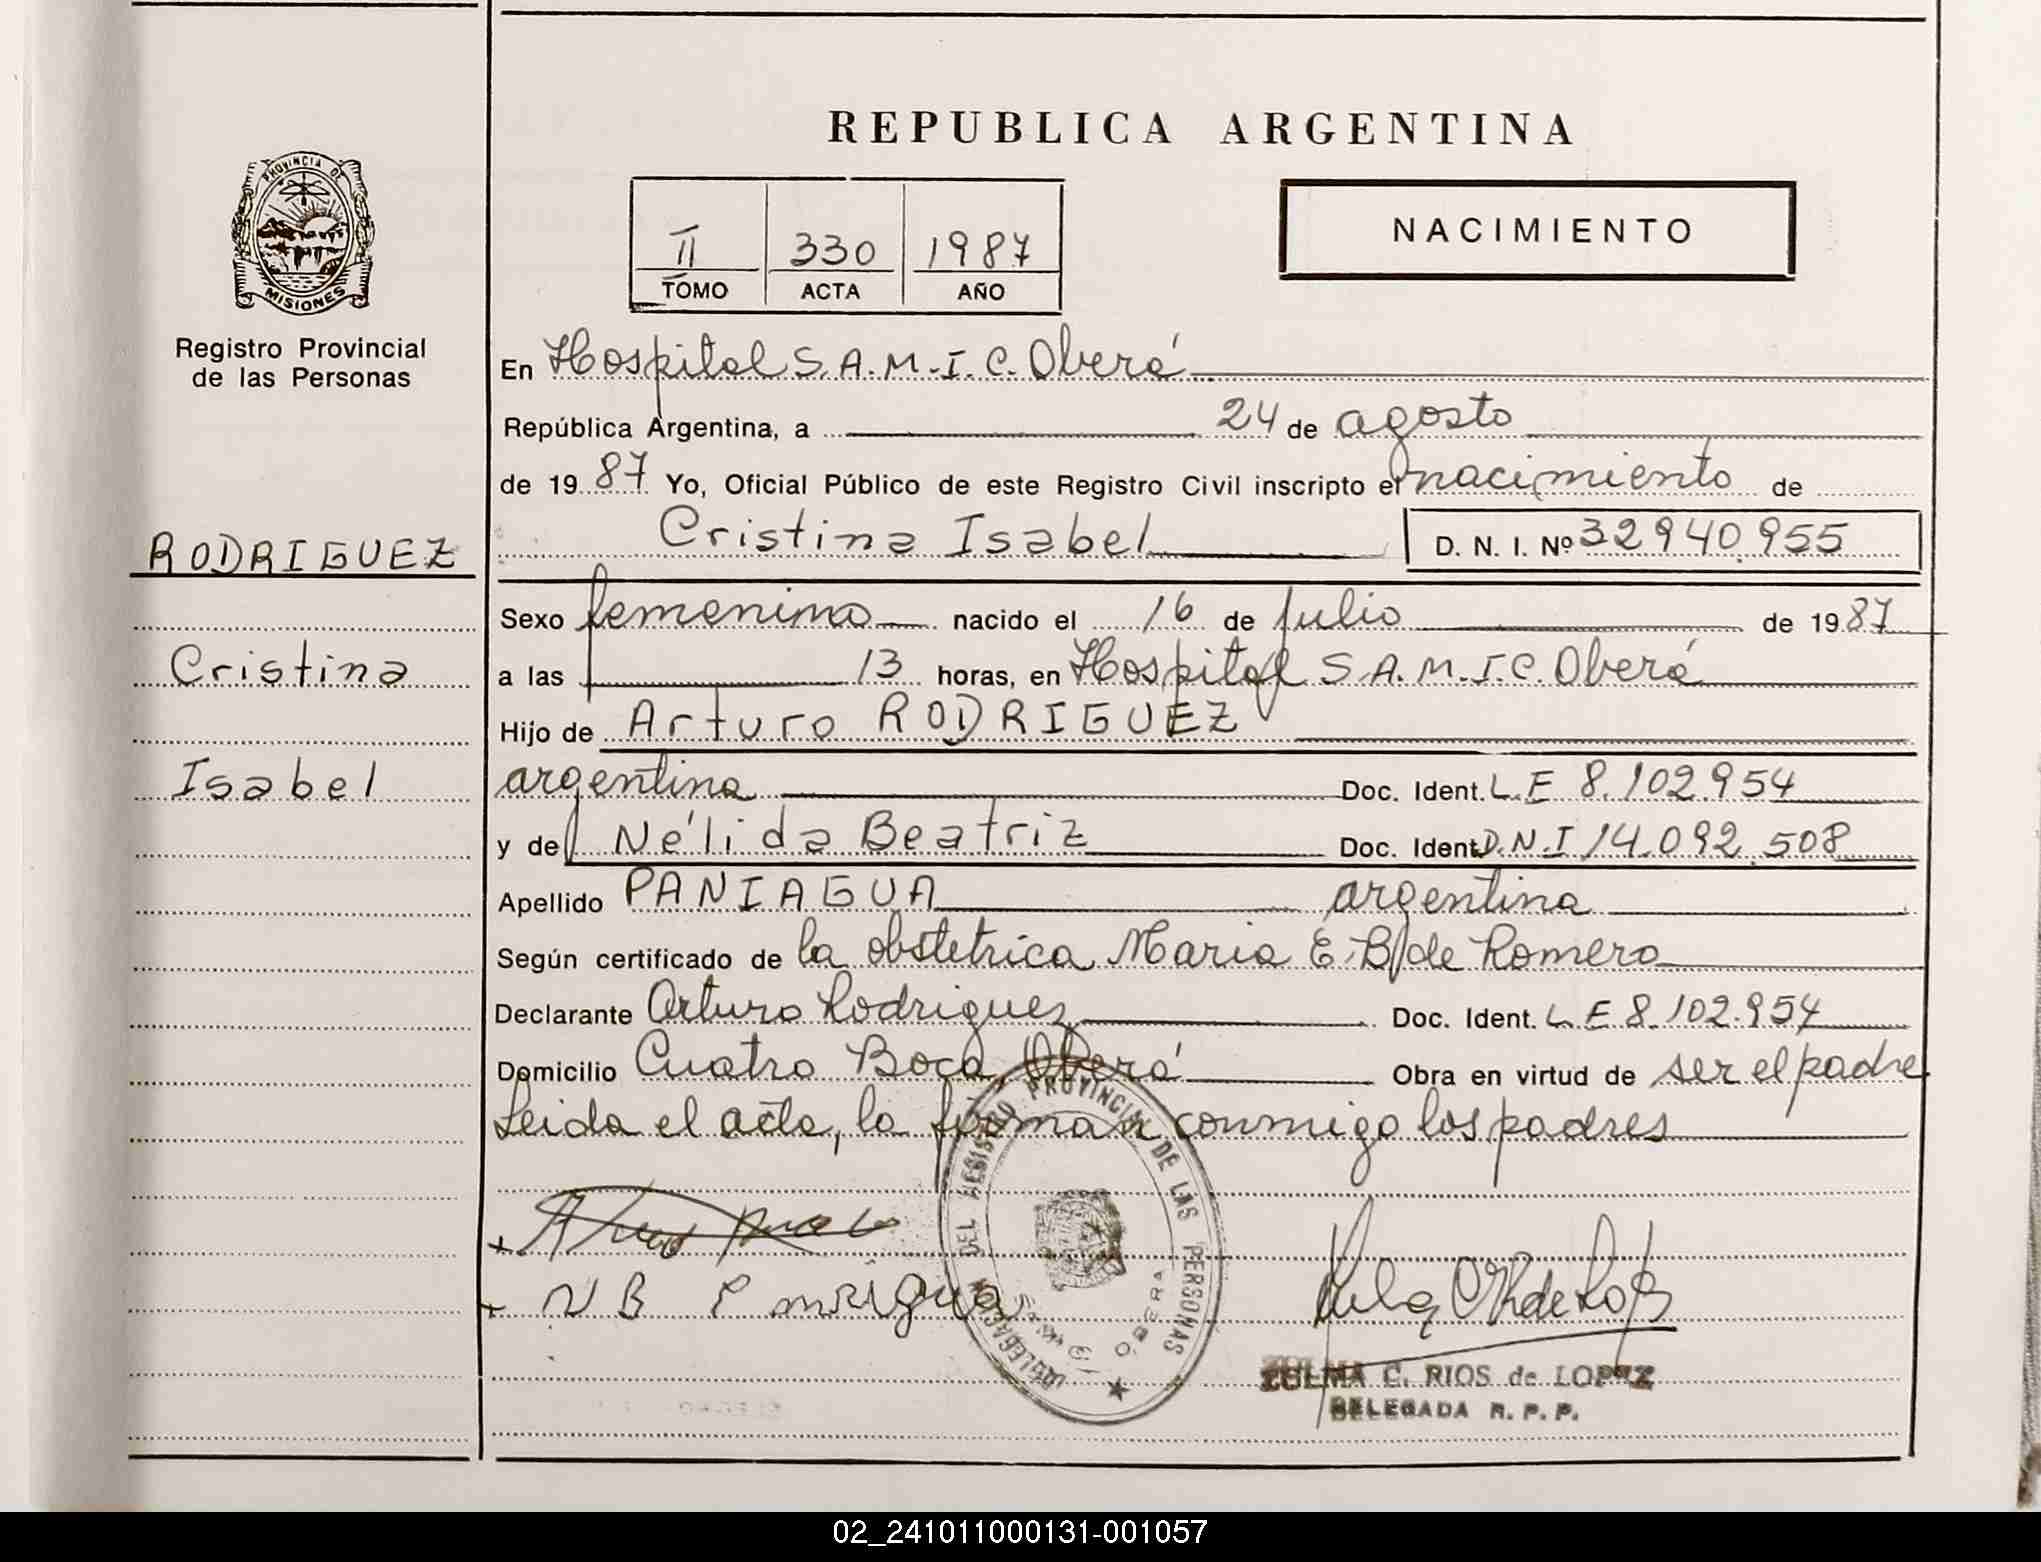 REPUBLICA ARGENTINA
PROVINCIA DE
MISIONES
Registro Provincial
de las Personas
II 330 1987
TOMO ACTA AÑO
NACIMIENTO
RODRIGUEZ
Cristina
Isabel
En Hospital S.A.M.I.C. Oberá
República Argentina, a 24 de agosto
de 1987 Yo, Oficial Público de este Registro Civil inscripto el nacimiento de
Cristina Isabel D. N. I. Nº 32940.955
Sexo femenino nacido el 16 de julio de 1987
a las 13 horas, en Hospital S.A.M.I.C. Oberá
Hijo de Arturo RODRIGUEZ
argentina Doc. Ident. L.E 8.102.954
y de Nélida Beatriz Doc. Ident. D.N.I 14.092.508
Apellido PANIAGUA argentina
Según certificado de la obstetrica Maria E. B. de Romero
Declarante Arturo Rodriguez Doc. Ident. L.E 8.102.954
Domicilio Cuatro Boca, Oberá Obra en virtud de ser el padre
Leida el acta, la firman conmigo los padres
DELEGACION DEL REGISTRO PROVINCIAL DE LAS PERSONAS
OBERA
N B
ZULMA C. RIOS de LOPEZ
DELEGADA R. P. P.
02_241011000131-001057